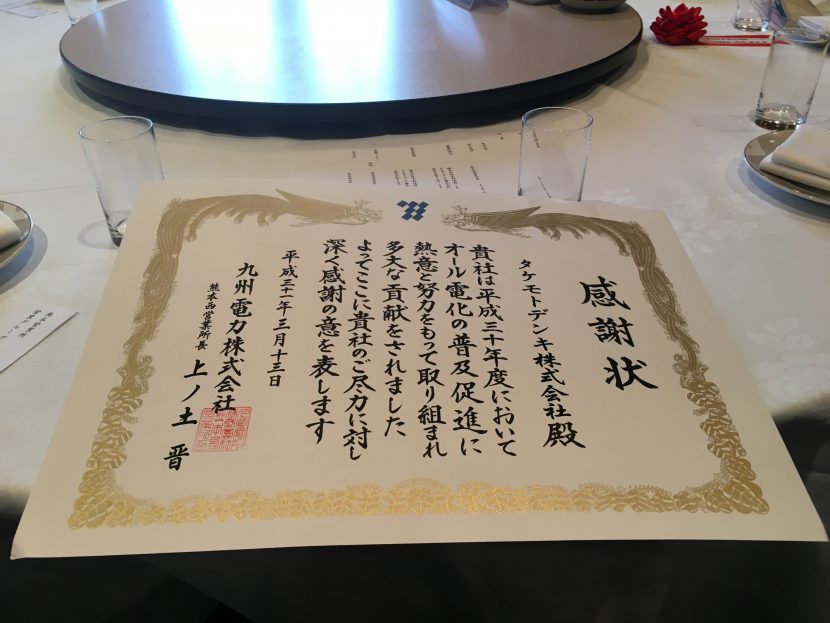 感謝状
タケモトデンキ株式会社殿
貴社は平成三十年度において
オール電化の普及促進に
熱意と努力をもって取り組まれ
多大な貢献をされました
よってここに貴社のご尽力に対し
深く感謝の意を表します
平成三十一年三月十三日
九州電力株式会社
熊本西営業所長
上ノ土 晋